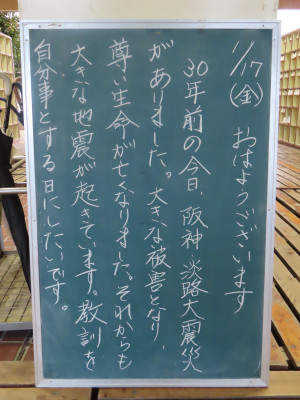 1/17(金) おはようございます
30年前の今日、阪神・淡路大震災
がありました。大きな被害となり、
尊い生命が亡くなりました。それからも
大きな地震が起きています。教訓を
自分事とする日にしたいです。